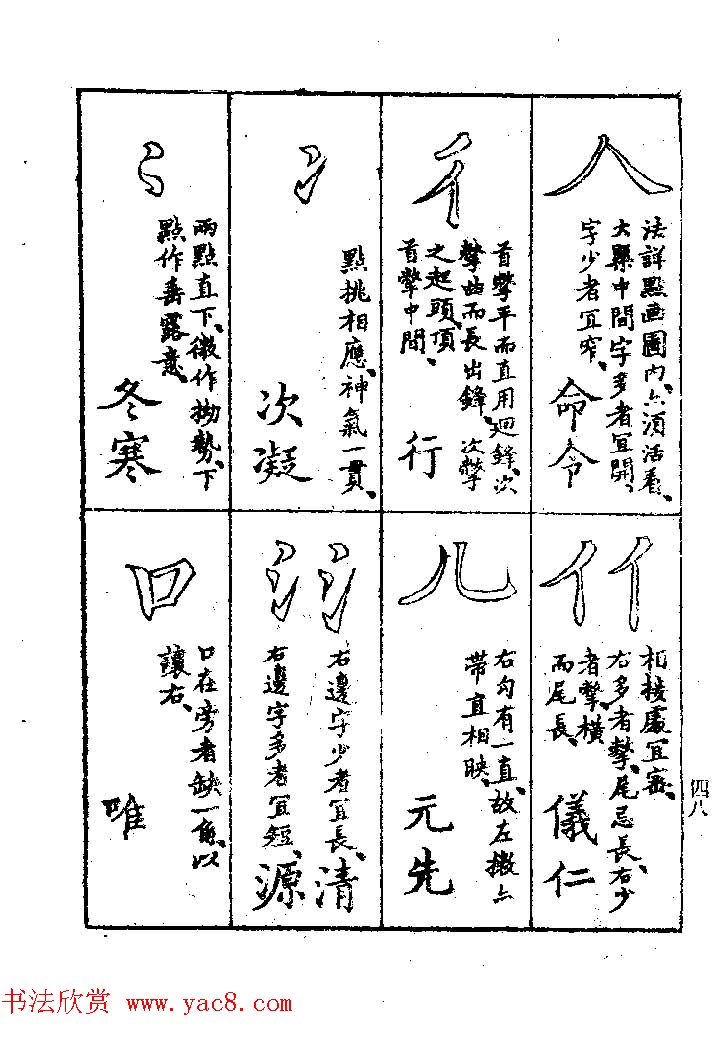 人
法詳點画圖内、亦須活看、
大槩中間字多者宜開、
字少者宜窄、
命令
彳
首撆平而直用迴鋒、次
撆曲而長出鋒、次撆
之起頭、頂
首撆中間、
行
冫
點挑相應、神氣一貫、
次凝
兩點直下、微作拗勢、下
點作垂露意、
冬寒
亻亻
相接處宜密、
右多者撆尾忌長、右少
者撆橫
而尾長、
儀仁
儿
右勾有一直、故左撇亦
帶直相映、
元先
氵氵
右邊字少者宜長、
右邊字多者宜短、
清
源
口
口在旁者缺一角、以
讓右、
唯
四八
书法欣赏 www.yac8.com